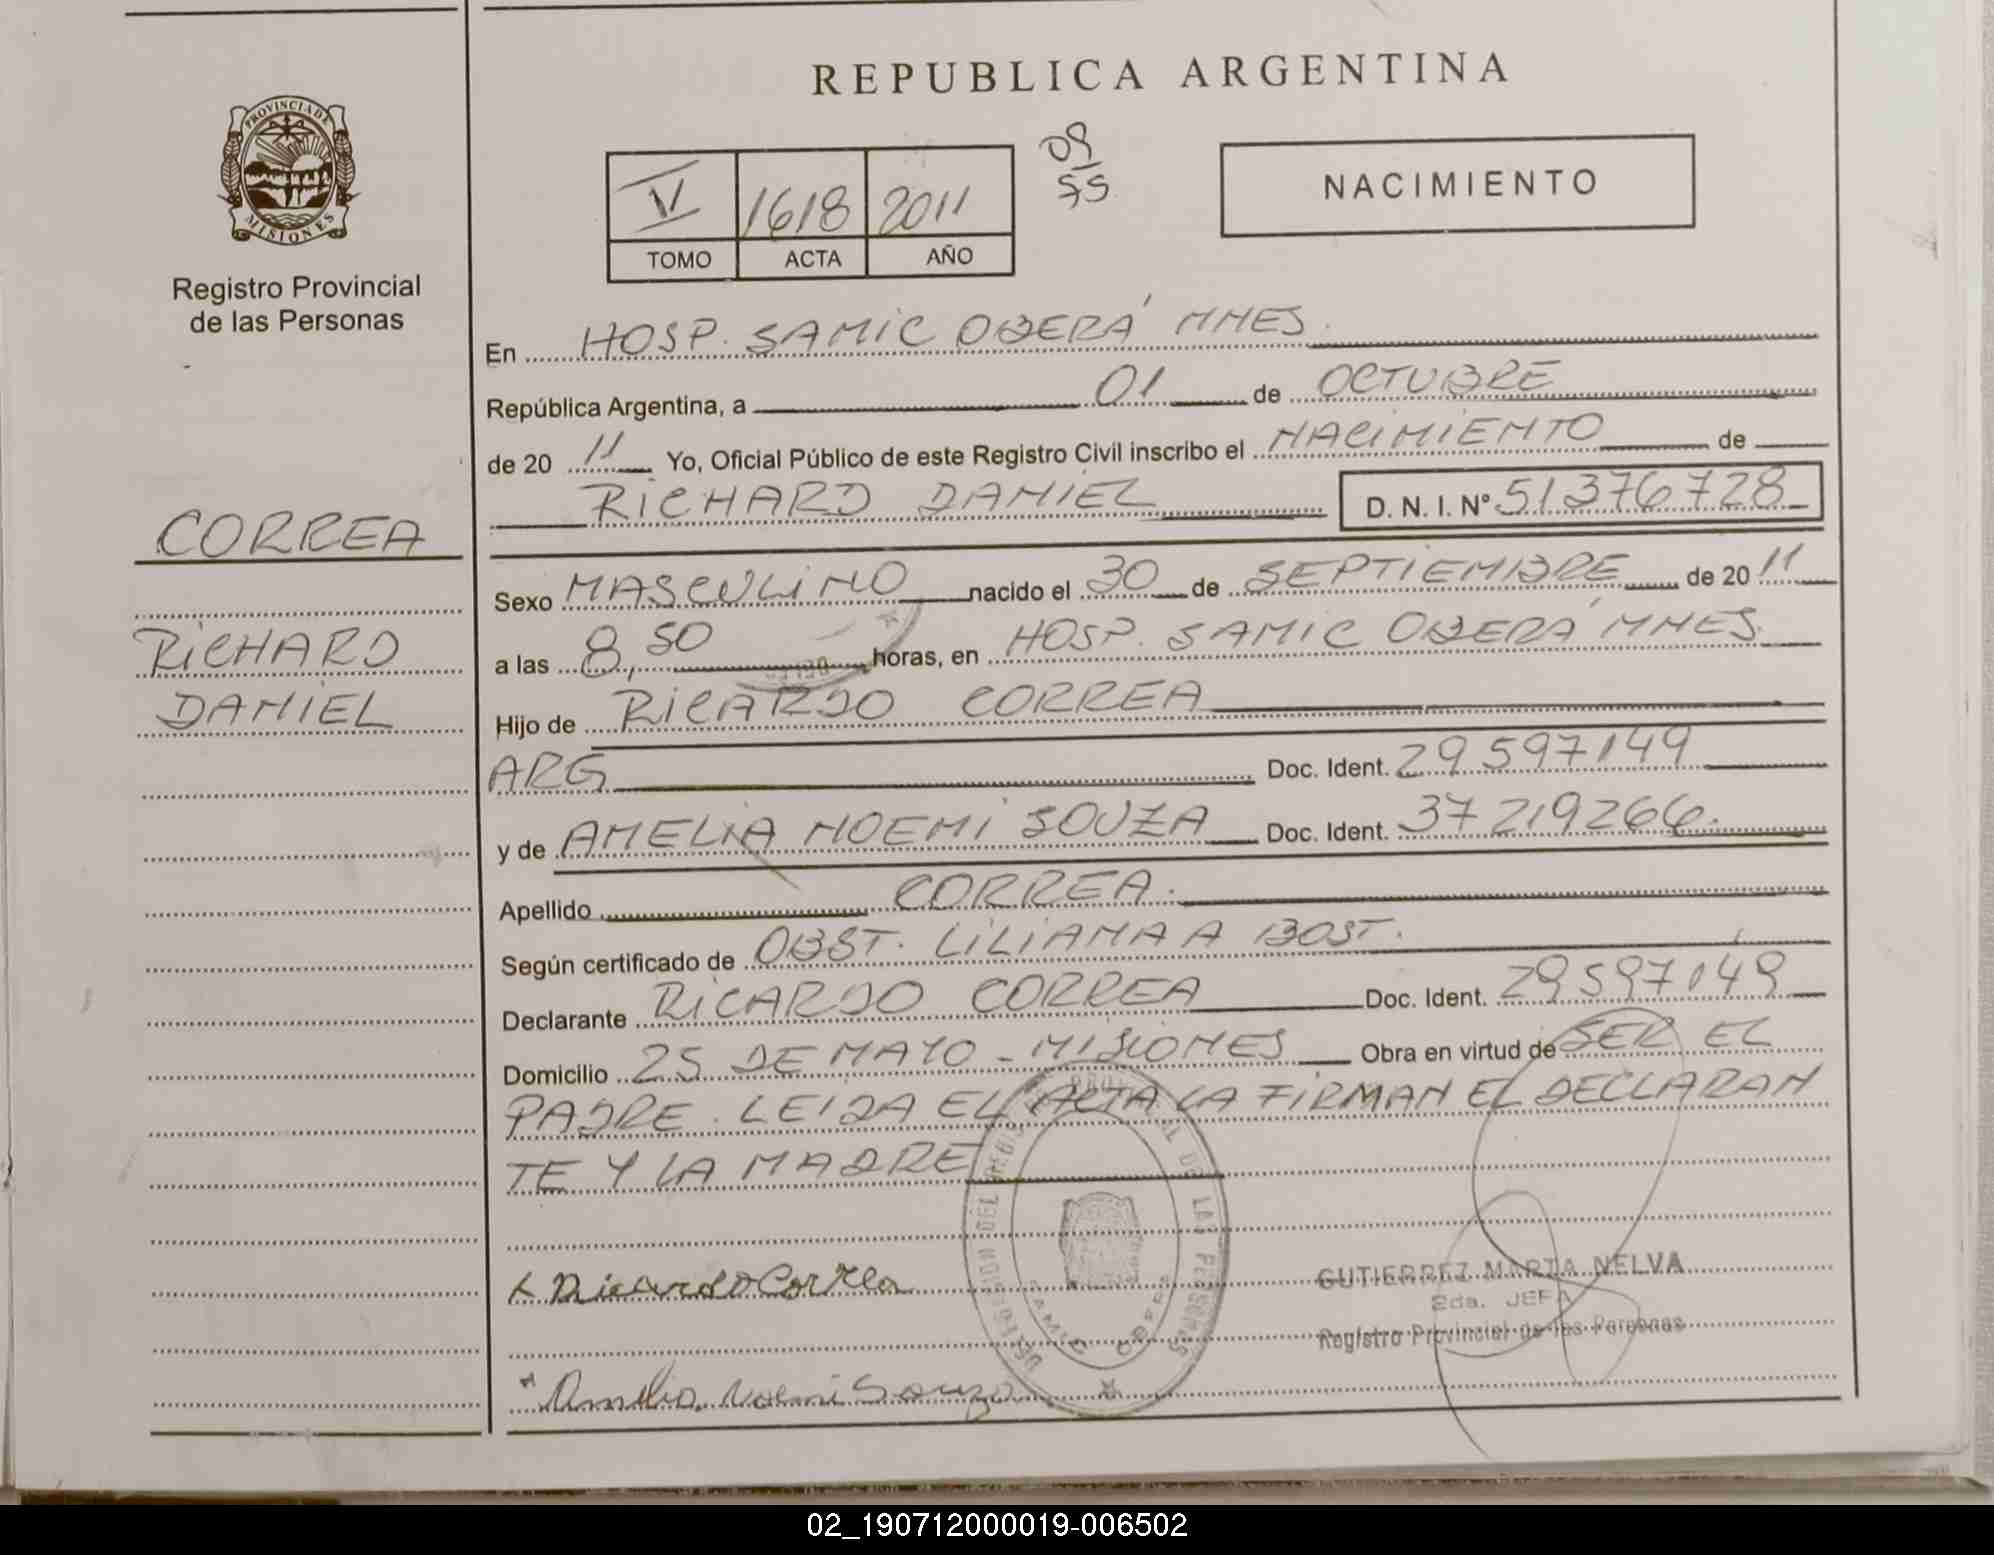 REPUBLICA ARGENTINA
PROVINCIA DE
MISIONES
Registro Provincial
de las Personas
VI 1618 2011
TOMO ACTA AÑO
09
75
NACIMIENTO
En HOSP. SAMIC OBERÁ MNES.
República Argentina, a 01 de OCTUBRE
de 20 11 Yo, Oficial Público de este Registro Civil inscribo el NACIMIENTO de
RICHARD DANIEL D. N. I. Nº 51376728
CORREA
RICHARD
DANIEL
Sexo MASCULINO nacido el 30 de SEPTIEMBRE de 20 11
a las 8,50 horas, en HOSP. SAMIC OBERÁ MNES.
Hijo de RICARDO CORREA
ARG Doc. Ident. 29597149
y de AMELIA NOEMI SOUZA Doc. Ident. 37219266.
Apellido CORREA.
Según certificado de OBST. LILIANA A BOST.
Declarante RICARDO CORREA Doc. Ident. 29597149
Domicilio 25 DE MAYO - MISIONES Obra en virtud de SER EL
PADRE. LEIDA EL ACTA LA FIRMAN EL DECLARAN
TE Y LA MADRE
Ricardo Correa
GUTIERREZ MARTA NELVA
2da. JEFA
Registro Provincial de las Personas
Amelia Noemi Souza
02_190712000019-006502